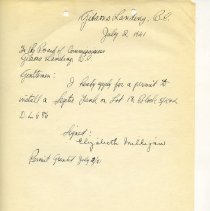 Gibsons Landing, B.C.
July 2, 1941
To the Board of Commissioners
Gibsons Landing, B.C.
Gentlemen: I hereby apply for a permit to
install a Septic Tank on Lot 12 Block
D.L. 686
Signed:
Elizabeth Mulligan
Permit Granted July 2/41